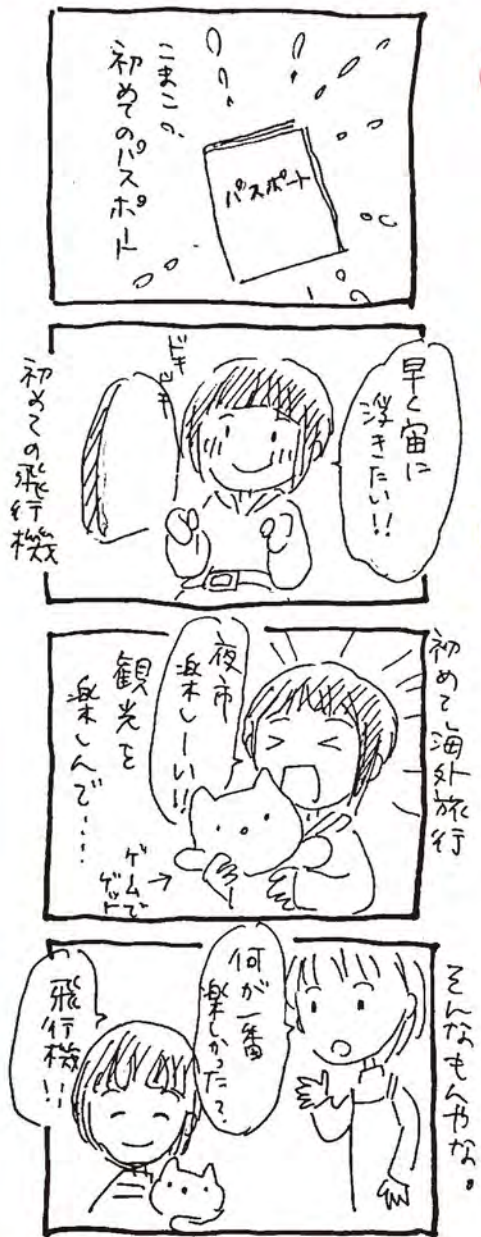 こまこの、
初めてのパスポート
パスポート
早く宙に
浮きたい!!
ドキ
ドキ
初めての飛行機
初めて海外旅行
夜市
楽しーい!!
観光を
楽しんで・・・・
ゲームで
ゲット
→
そんなもんやな。
何が一番
楽しかった?
飛行機!!